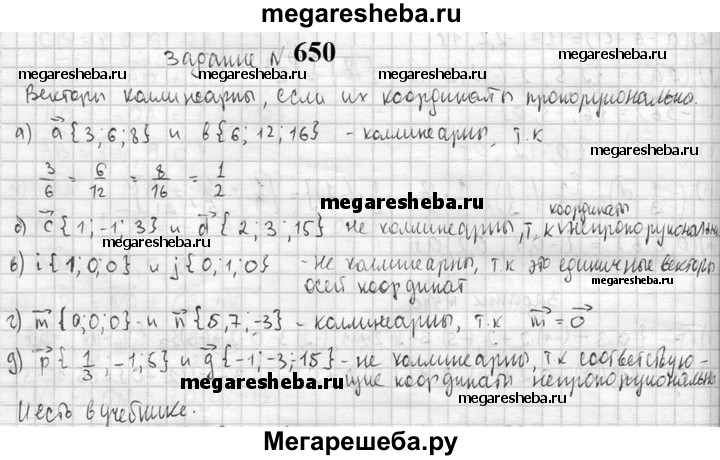 megaresheba.ru
Задание N 650
megaresheba.ru megaresheba.ru megaresheba.ru
Вектори коллинеарны, если их координаты пропорциональны.
а) a {3; 6; 8} и в{6; 12; 16} - коллинеарны, т.к
megaresheba.ru
3/6 = 6/12 = 8/16 = 1/2
megaresheba.ru
координаты
б) c {1; -1; 3} и d { 2; 3; 15} не коллинеарны, т.к непропорциональны
в) i {1; 0; 0} и j {0; 1; 0} - не коллинеарны, т.к это единичные векторы
осей координат
megaresheba.ru megaresheba.ru
г) m {0; 0; 0} и n {5, 7; -3} - коллинеарны, т.к m = 0
д) p { 1/3, -1; 5} и g {-1; -3; -15} - не коллинеарны, т.к соответствую-
щие координаты непропорциональны
megaresheba.ru megaresheba.ru
И есть в учебнике.
Мегарешеба.ру